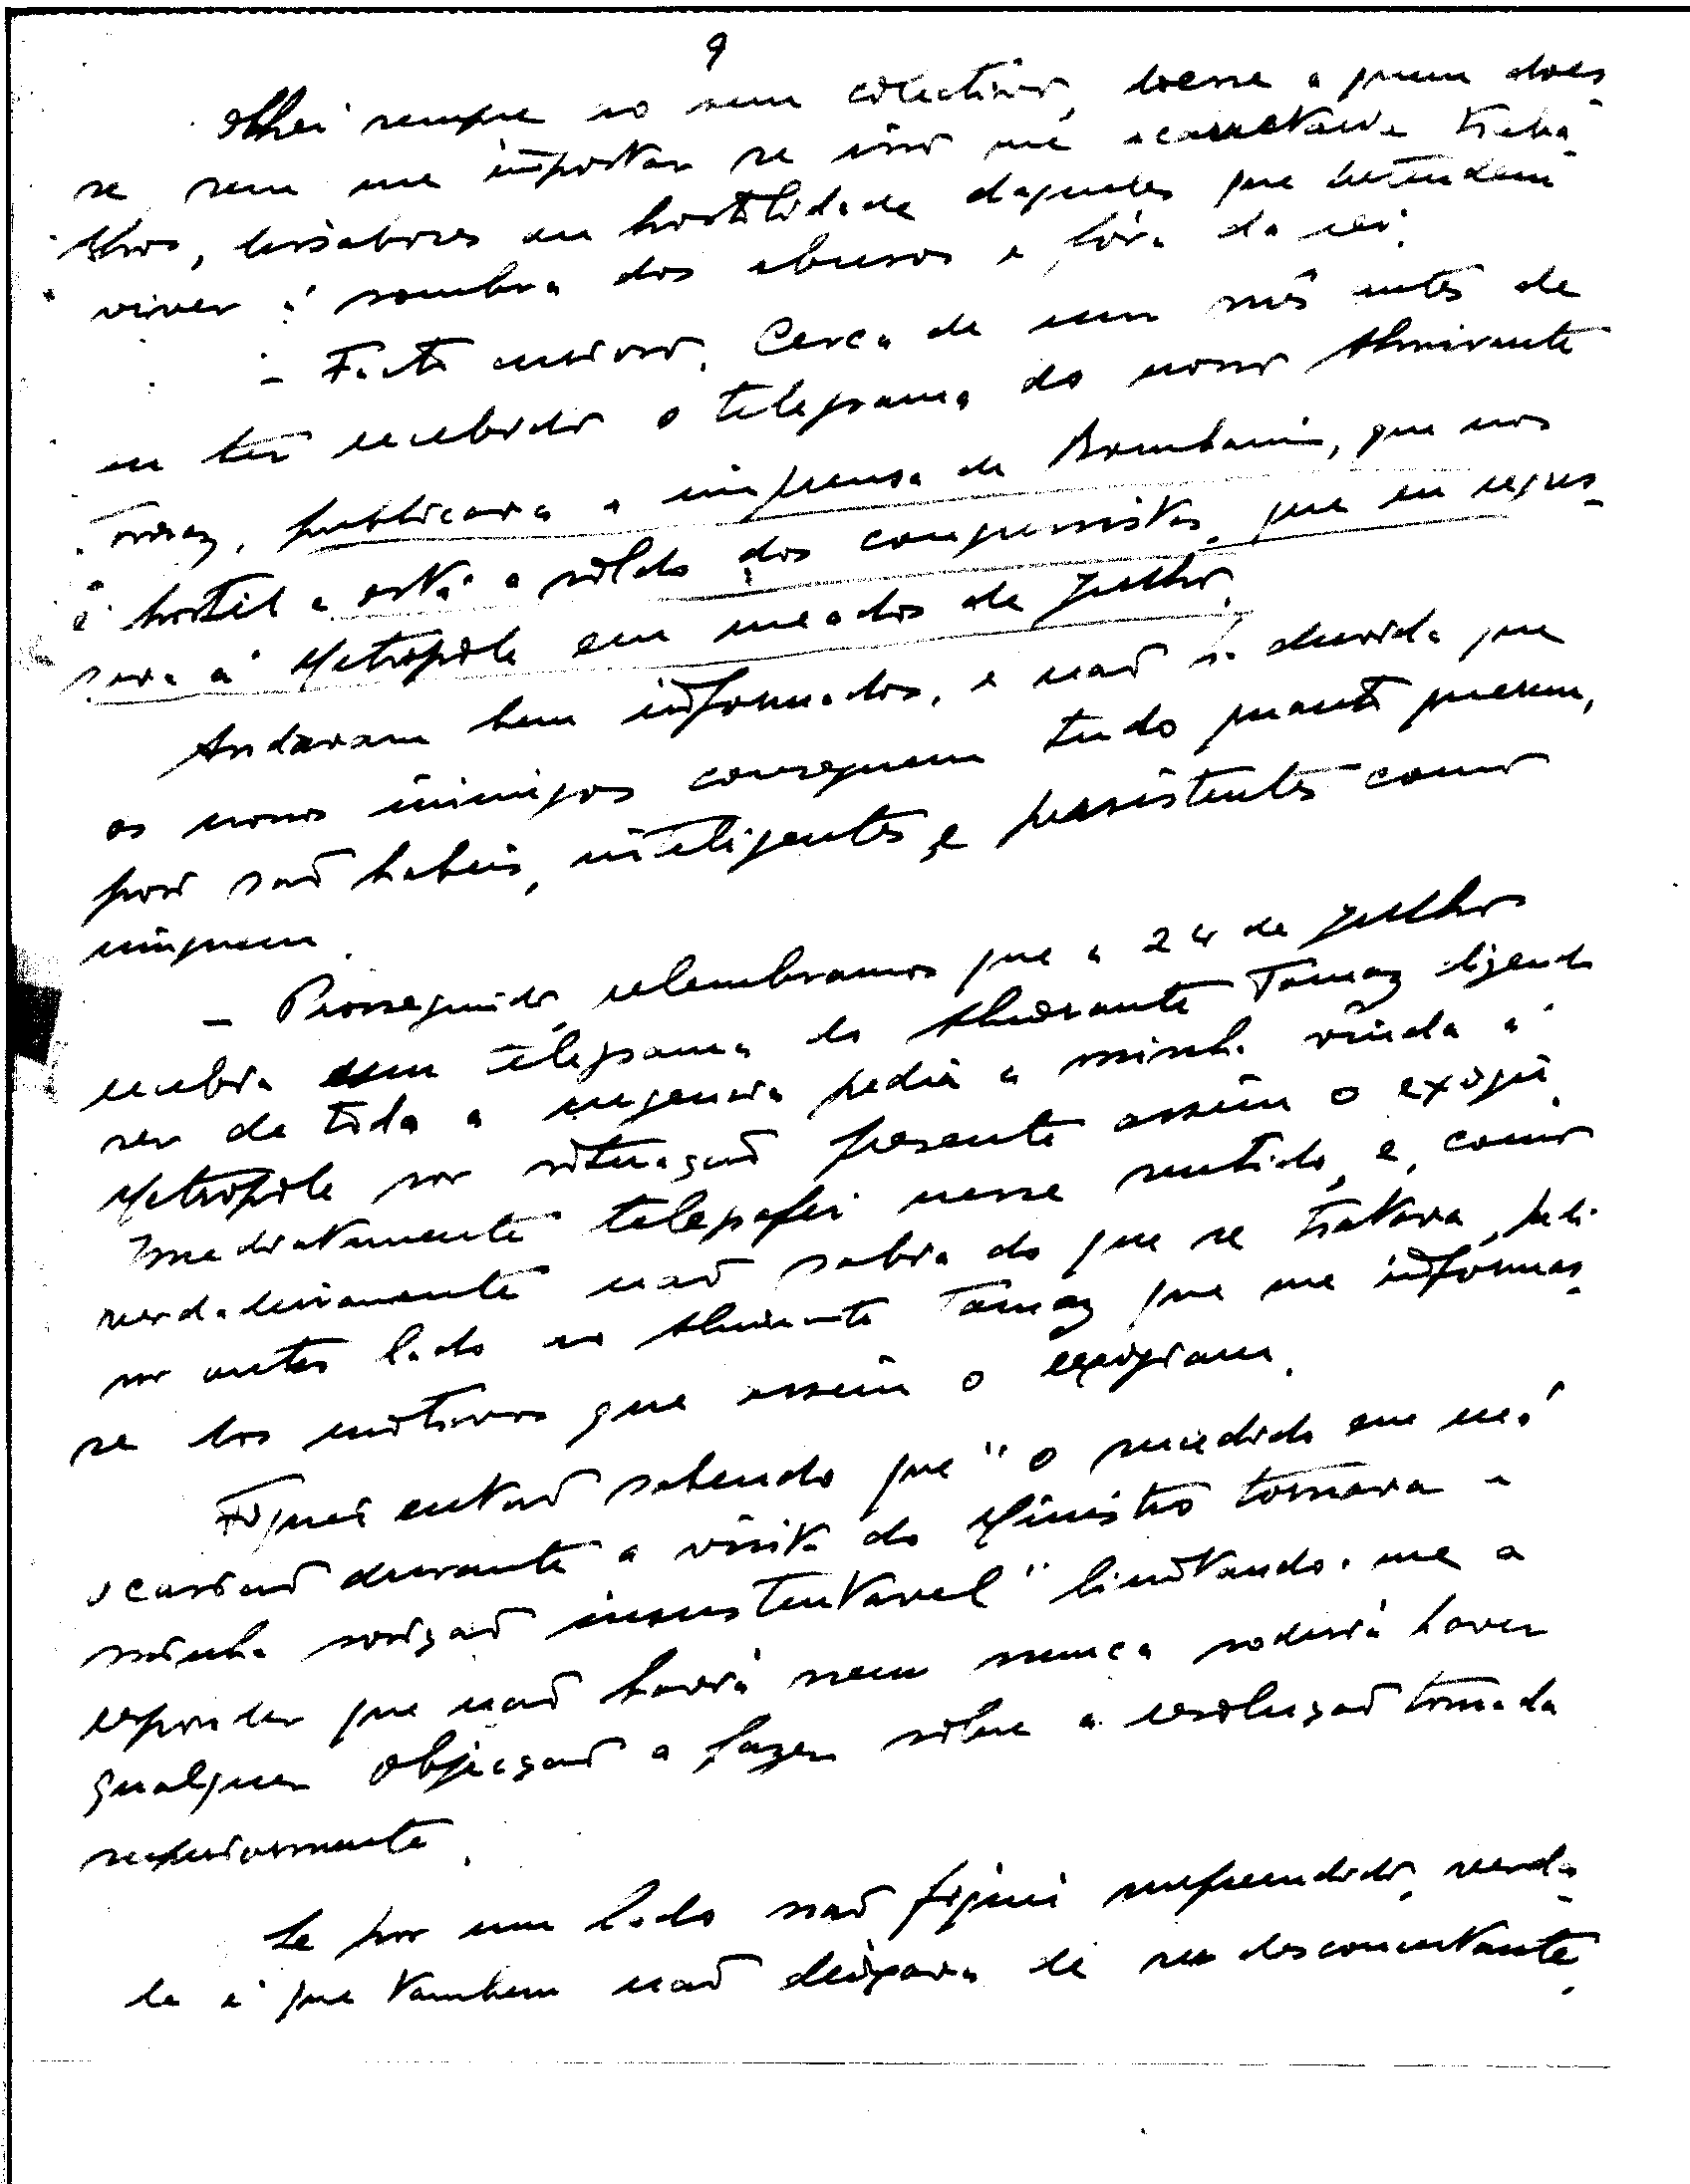 9
Olhei sempre ao bem colectivo, doesse a quem does
se, sem me importar se isso me acarretava traba
lhos, dissabores ou hostilidade daqueles que pretendem
viver á sombra dos abusos e fóra da lei.
- Facto curioso. Cerca de um mês antes de
eu ter recebido o telegrama do nosso Almirante
Tomaz, publicara a imprensa de Bombaim, que nos
é hostil e está a sôldo dos congressistas, que eu regres-
sava á Metropole em meados de Julho.
Andavam bem informados, e naõ ha duvida que
os nossos inimigos conseguem tudo quanto querem,
pois saõ habeis, inteligentes e persistentes como
ninguem.
- Prosseguindo, relembramos que a 24 de Julho
recebia um telegrama do Almirante Tomaz dizendo
ser de toda a urgencia pedir a minha vinda á
Metropole por situaçaõ presente assim o exigir.
Imediatamente telegrafei nesse sentido, e, como
verdadeiramente naõ sabia do que se tratava, pedi
por outro lado ao Almirante Tomaz que me informas-
se dos motivos que assim o exigiam.
Fiquei entaõ sabendo que "o sucedido em Goá
ocasiaõ durante a visita do Ministro tornara a
minha posiçaõ insustentavel" limitando-me a
responder que naõ havia nem nunca poderia haver
qualquer objeçaõ a fazer sôbre a resoluçaõ tomada
superiormente.
Se por um lado naõ fiquei surpreendido, verda-
de é que tambem naõ deixava de ser desconcertante.